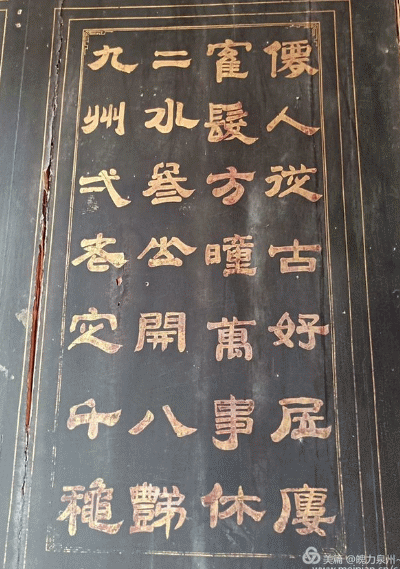 僊人從古好居廔
寉髮方瞳萬事休
二水叁山開八豑
九州弌老定千龝
美篇 @魄力泉州